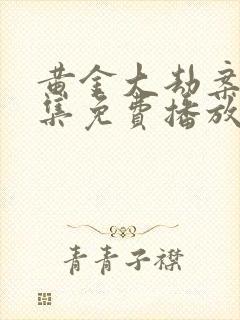 黄金大劫案
集免費播放
青青子襟